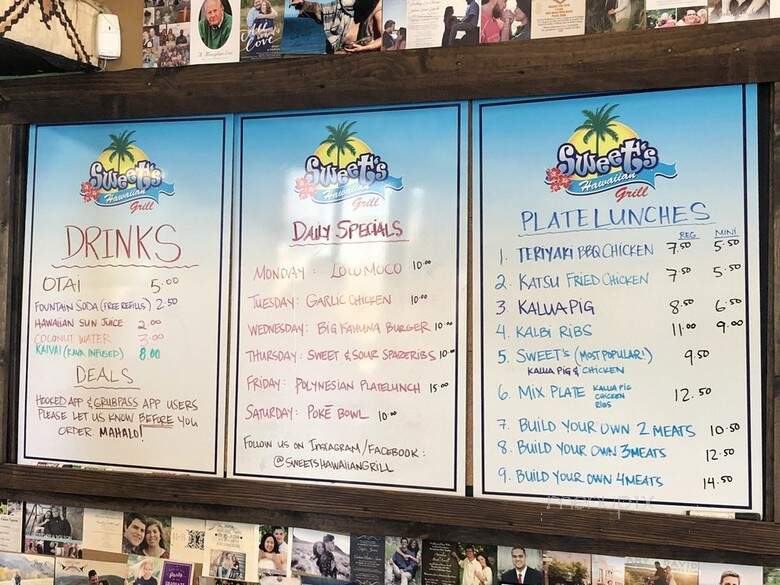 Sweet's
Hawaiian
Grill
DRINKS
OTAI 5.00
FOUNTAIN SODA (FREE REFILLS) 2.50
HAWAIIAN SUN JUICE 2.00
COCONUT WATER 3.00
KAIVAI (KAVA INFUSED) 8.00
DEALS
HOOKED APP & GRUBPASS APP USERS
PLEASE LET US KNOW BEFORE YOU
ORDER. MAHALO!
Sweet's
Hawaiian
Grill
DAILY SPECIALS
MONDAY: LOCO MOCO 10.00
TUESDAY: GARLIC CHICKEN 10.00
WEDNESDAY: BIG KAHUNA BURGER 10.00
THURSDAY: SWEET & SOUR SPARERIBS 10.00
FRIDAY: POLYNESIAN PLATELUNCH 15.00
SATURDAY: POKÉ BOWL 10.00
FOLLOW US ON INSTAGRAM/FACEBOOK:
@SWEETSHAWAIIANGRILL
Sweet's
Hawaiian
Grill
PLATE LUNCHES
REG MINI
1. TERIYAKI BBQ CHICKEN 7.50 5.50
2. KATSU FRIED CHICKEN 7.50 5.50
3. KALUA PIG 8.50 6.50
4. KALBI RIBS 11.00 9.00
5. SWEET'S (MOST POPULAR!) 9.50
KALUA PIG & CHICKEN
6. MIX PLATE KALUA PIG
CHICKEN
RIBS 12.50
7. BUILD YOUR OWN 2 MEATS 10.50
8. BUILD YOUR OWN 3 MEATS 12.50
9. BUILD YOUR OWN 4 MEATS 14.50